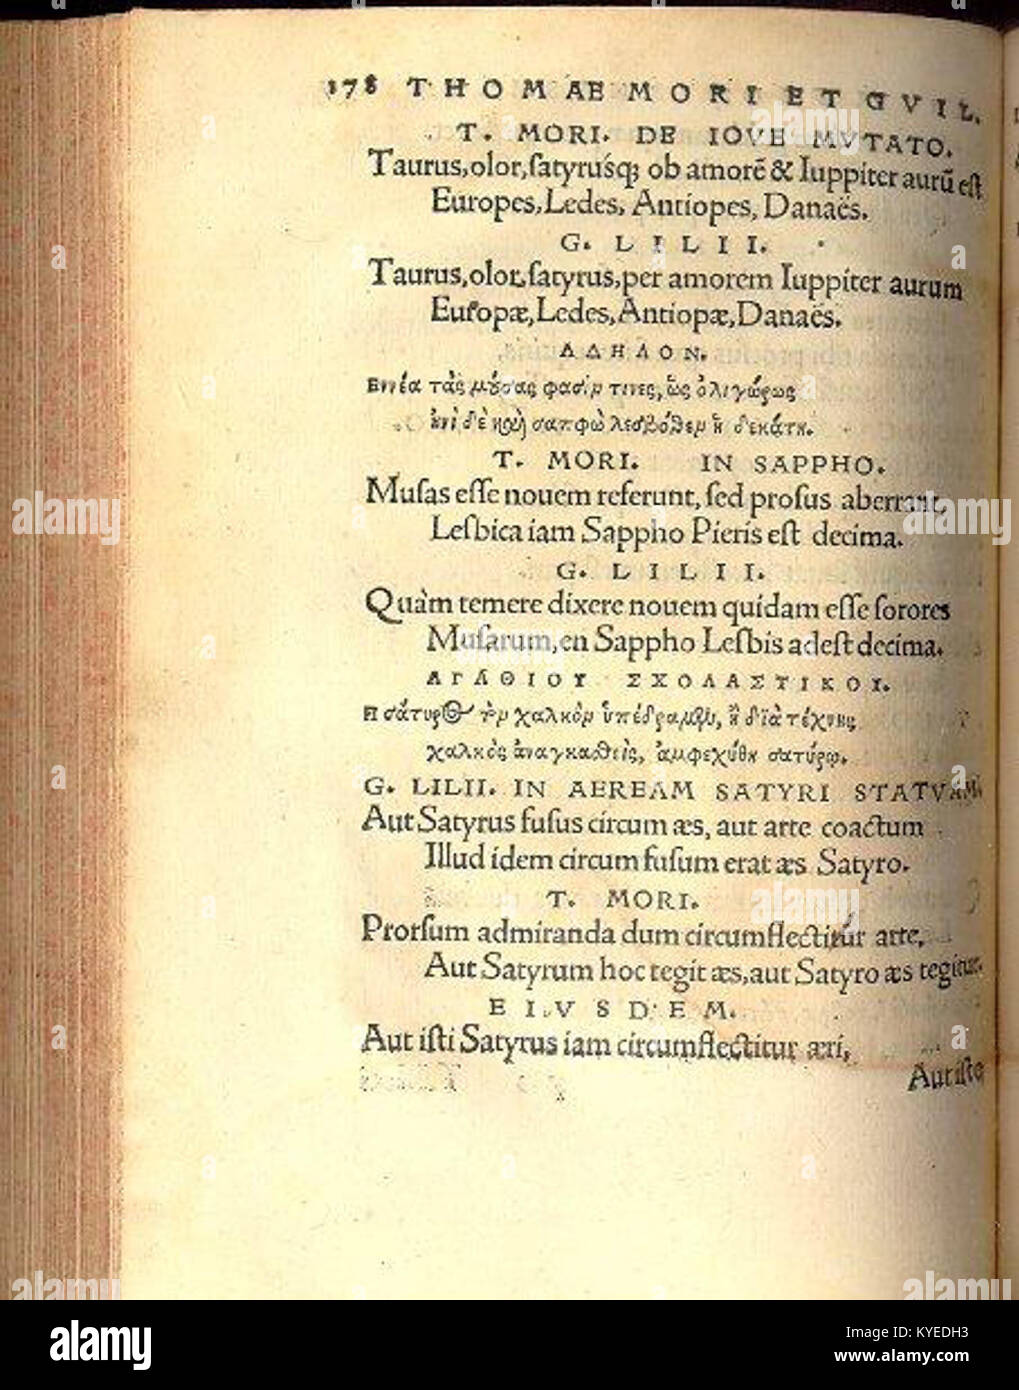 178 THOMAE MORI ET GVIL.
T. MORI. DE IOVE MVTATO.
Taurus, olor, ſatyruśq; ob amorē & Iuppiter aurū eſt
Europes, Ledes, Antiopes, Danaës.
G. LILII.
Taurus, olor, ſatyrus, per amorem Iuppiter aurum
Europæ, Ledes, Antiopæ, Danaës.
ΑΔΗΛΟΝ.
Εννέα τὰς μούσας φασίν τινες, ὡς ὀλιγώρως
ἠνὶ δὲ καὶ σαπφὼ λεσβόθεν ἡ δεκάτη.
T. MORI. IN SAPPHO.
Muſas eſſe nouem referunt, ſed proſus aberrant,
Leſbica iam Sappho Pieris eſt decima.
G. LILII.
Quàm temere dixere nouem quidam eſſe ſorores
Muſarum, en Sappho Leſbis adeſt decima.
ΑΓΑΘΙΟΥ ΣΧΟΛΑΣΤΙΚΟΙ.
Η σάτυρος τὸν χαλκὸν ὑπέδραμεν, ἢ διὰ τέχνης
χαλκὸς ἀναγκασθεὶς, ἀμφεχύθη σατύρῳ.
G. LILII. IN AEREAM SATYRI STATVAM.
Aut Satyrus fuſus circum æs, aut arte coactum
Illud idem circum fuſum erat æs Satyro.
T. MORI.
Prorſum admiranda dum circumflectitúr arte,
Aut Satyrum hoc tegit æs, aut Satyro æs tegitur.
EIVSDEM.
Aut iſti Satyrus iam circumflectitur æri,
Aut iſto
alamy
Image ID: KYEDH3
www.alamy.com